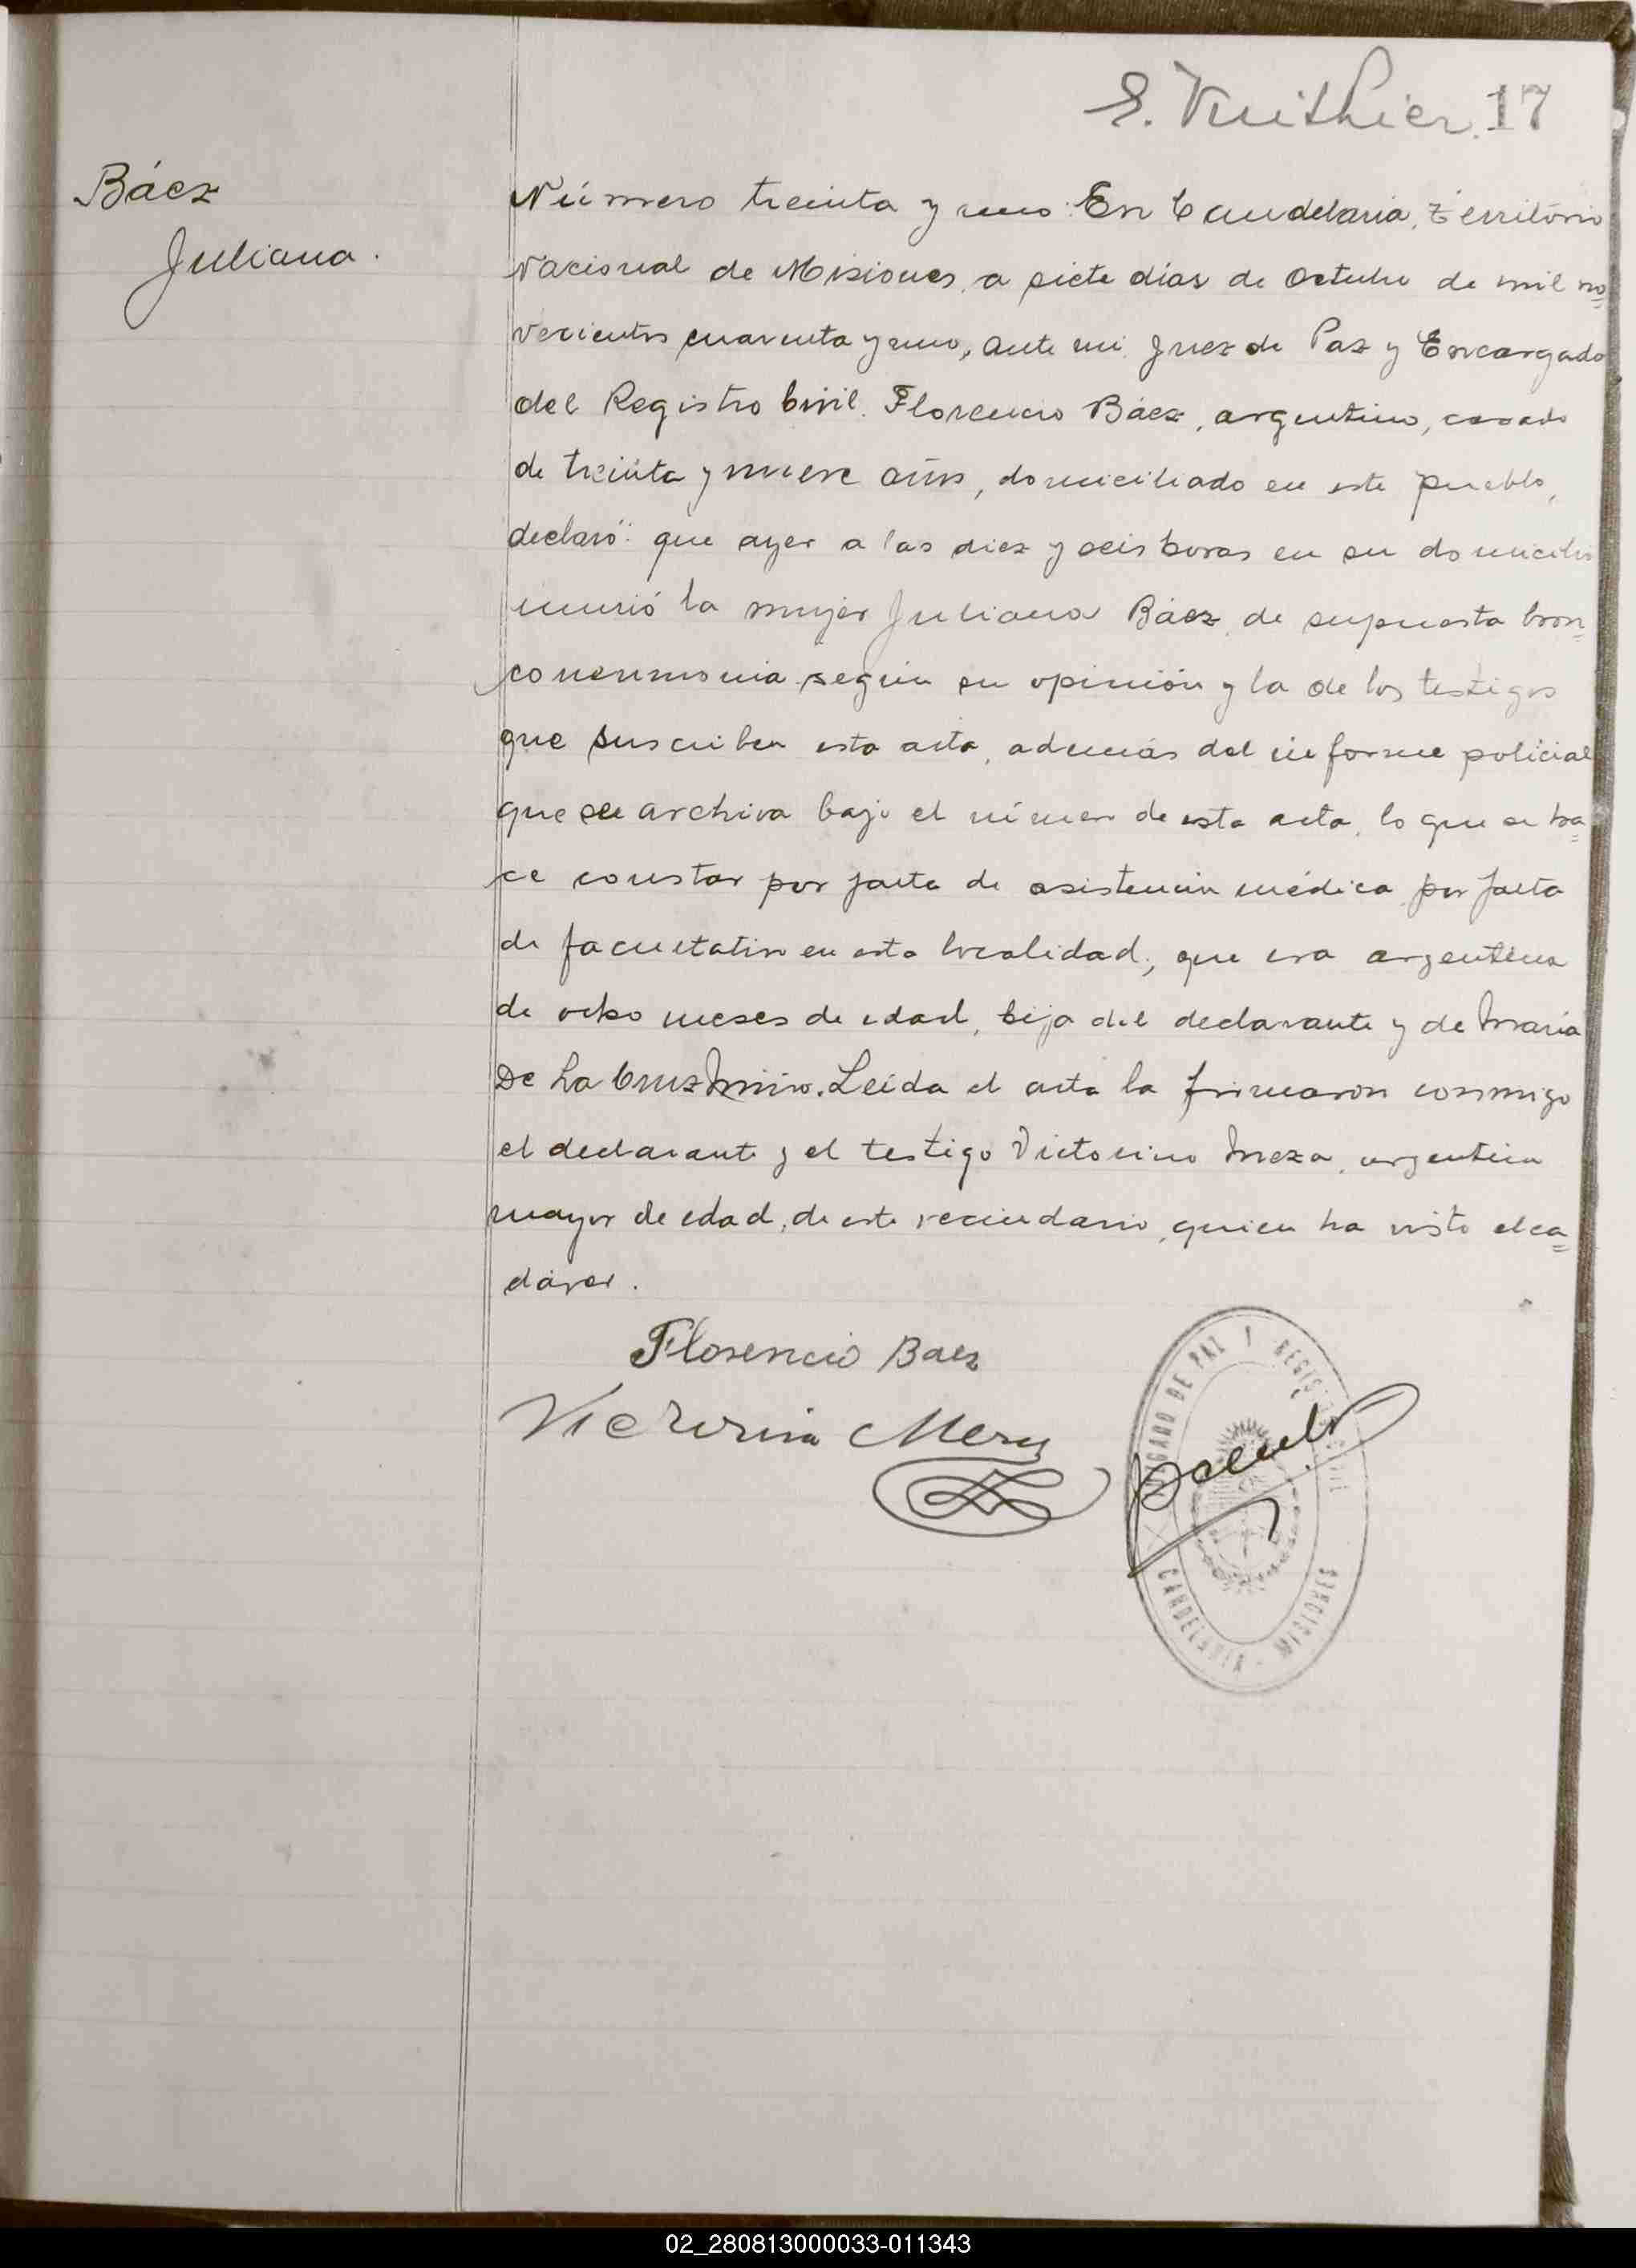 E. Vuithier. 17
Báez
Juliana.
Número treinta y uno: En Candelaria, Territorio
Nacional de Misiones, a siete días de Octubre de mil no=
vecientos cuarenta y uno, ante mi, Juez de Paz y Encargado
del Registro Civil, Florencio Báez, argentino, casado
de treinta y nueve años, domiciliado en este pueblo,
declaró: que ayer a las diez y seis horas en su domicilio
murió la mujer Juliana Báez, de supuesta bron=
coneumonia según su opinión y la de los testigos
que suscriben esta acta, además del informe policial
que se archiva bajo el número de esta acta, lo que se ha=
ce constar por falta de asistencia médica, por falta
de facultativo en esta localidad; que era argentina
de ocho meses de edad, hija del declarante y de Maria
De La Cruz Miño. Leída el acta la firmaron conmigo
el declarante y el testigo Victorino Meza, argentino
mayor de edad, de este vecindario, quien ha visto el ca=
dáver.
Florencio Baez
Victorino Meza
JUZGADO DE PAZ Y REGISTRO CIVIL
CANDELARIA - MISIONES
02_280813000033-011343